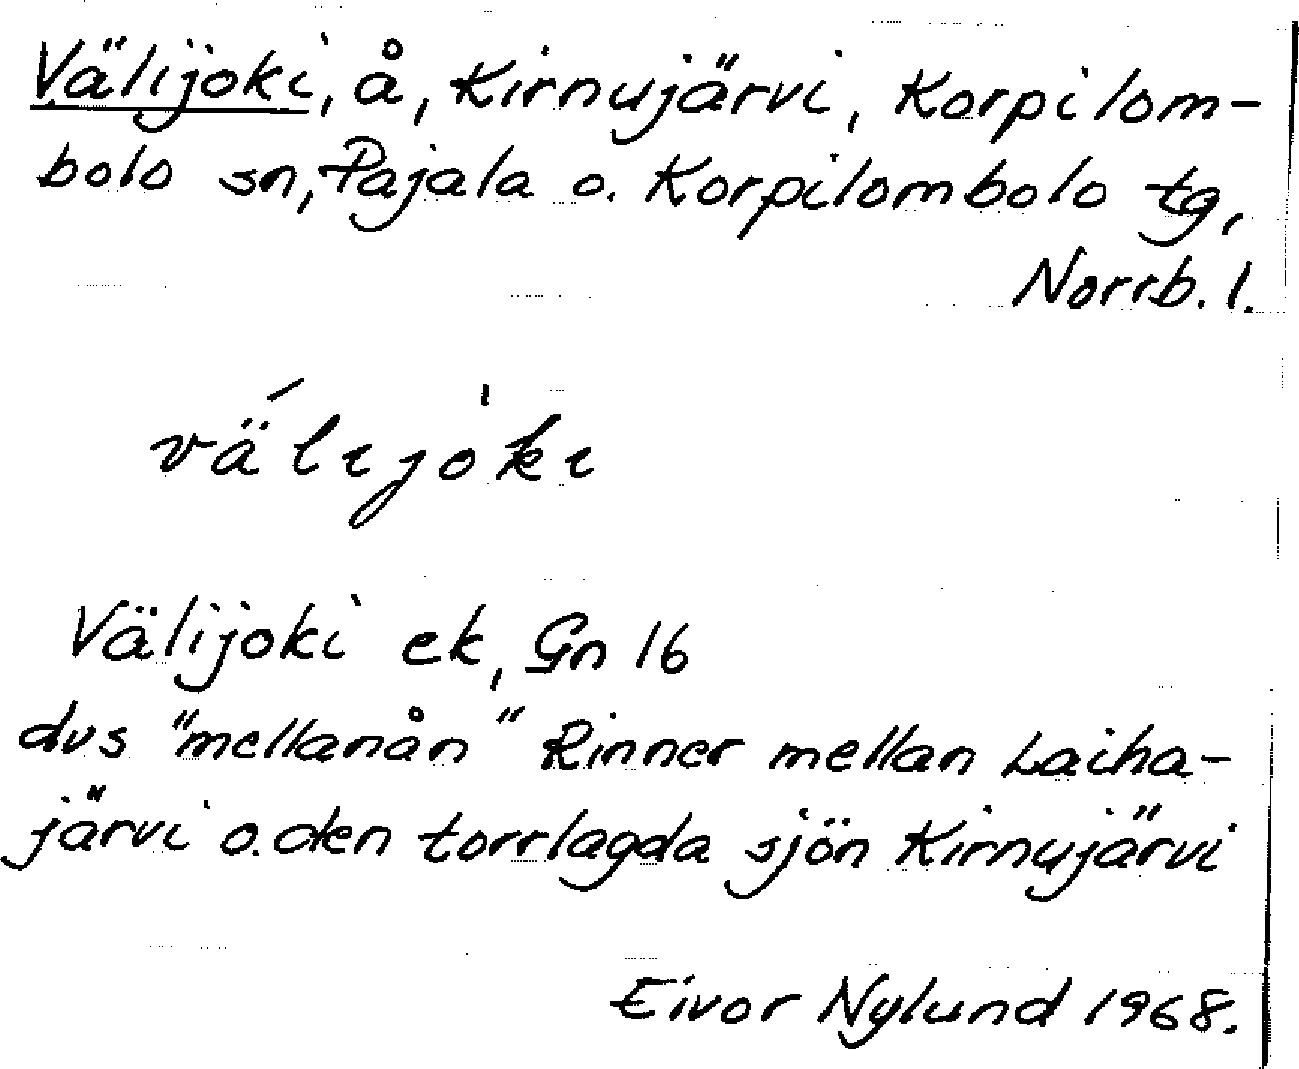 Välijoki, å, Kirnujärvi, Korpilom-
bolo sn, Pajala o. Korpilombolo tg,
Norrb. l.
vä́lijo̍ki
Välijoki ek, Gn 16
dvs "mellanån" Rinner mellan Laiha-
järvi o. den torrlagda sjön Kirnujärvi
Eivor Nylund 1968.